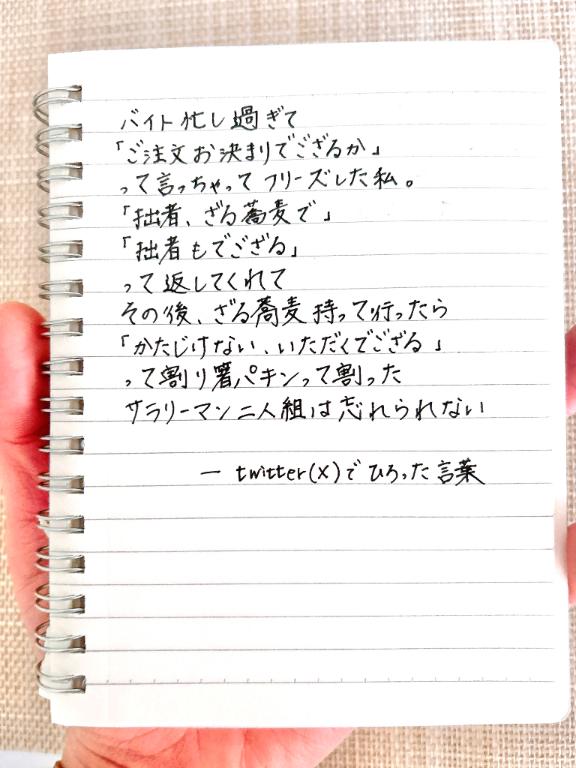 バイト忙し過ぎて
「ご注文お決まりでござるか」
って言っちゃってフリーズした私。
「拙者、ざる蕎麦で」
「拙者もでござる」
って返してくれて
その後、ざる蕎麦持って行ったら
「かたじけない、いただくでござる」
って割り箸パキンって割った
サラリーマン二人組は忘れられない
— twitter(X)でひろった言葉